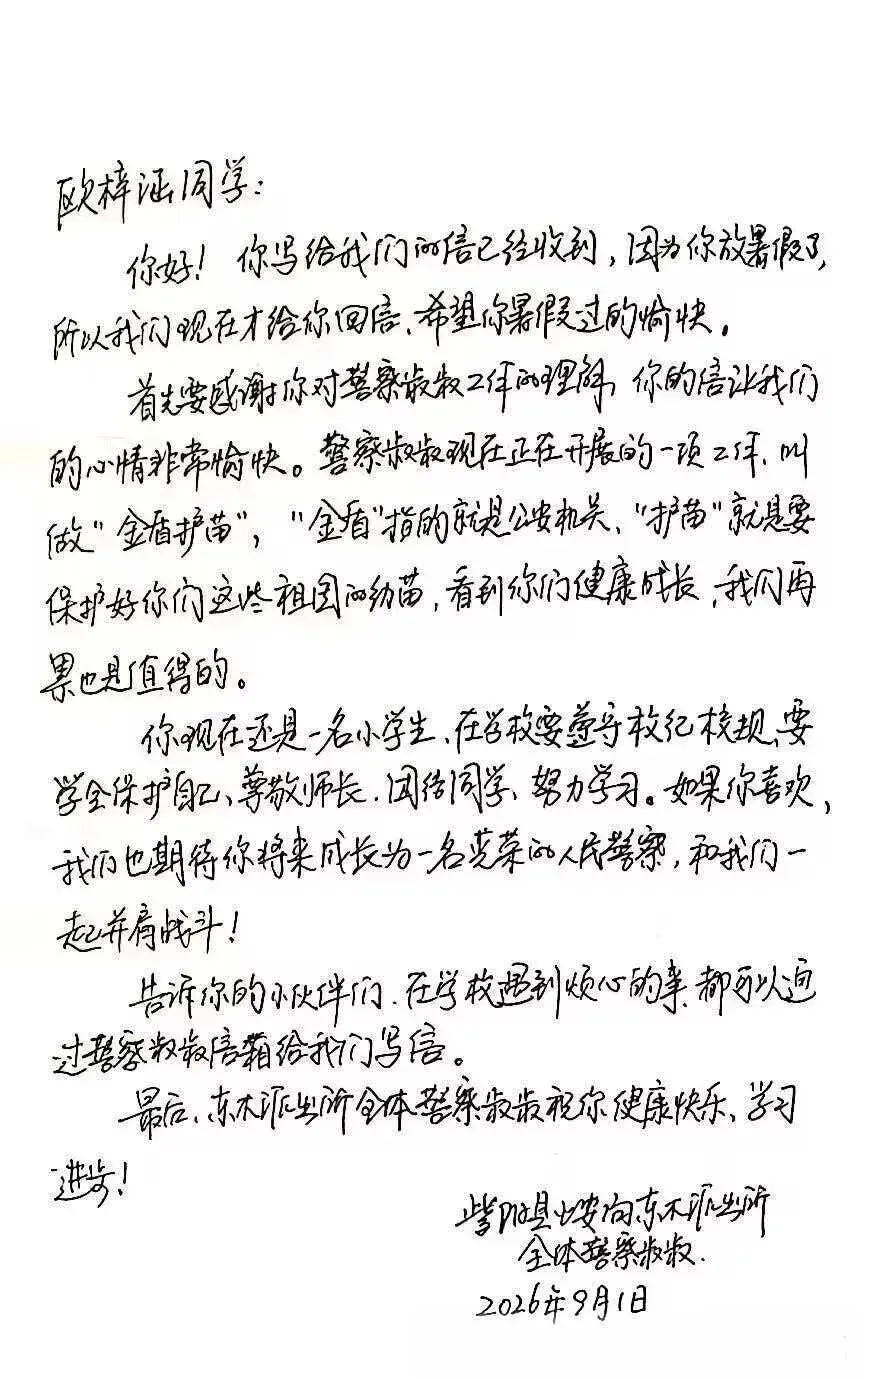 欧梓涵同学：
你好！你写给我们的信已经收到，因为你放暑假了，
所以我们现在才给你回信、希望你暑假过的愉快。
首先要感谢你对警察叔叔工作的理解，你的信让我们
的心情非常愉快。警察叔叔现在正在开展的一项工作，叫
做“金盾护苗”，“金盾”指的就是公安机关、“护苗”就是要
保护好你们这些祖国的幼苗，看到你们健康成长，我们再
累也是值得的。
你现在还是一名小学生、在学校要遵守校纪校规、要
学会保护自己、尊敬师长、团结同学、努力学习。如果你喜欢，
我们也期待你将来成长为一名光荣的人民警察，和我们一
起并肩战斗！
告诉你的小伙伴们、在学校遇到烦心的事、都可以通
过警察叔叔信箱给我们写信。
最后、东木派出所全体警察叔叔祝你健康快乐、学习
进步！
紫阳县公安局东木派出所
全体警察叔叔.
2026年9月1日